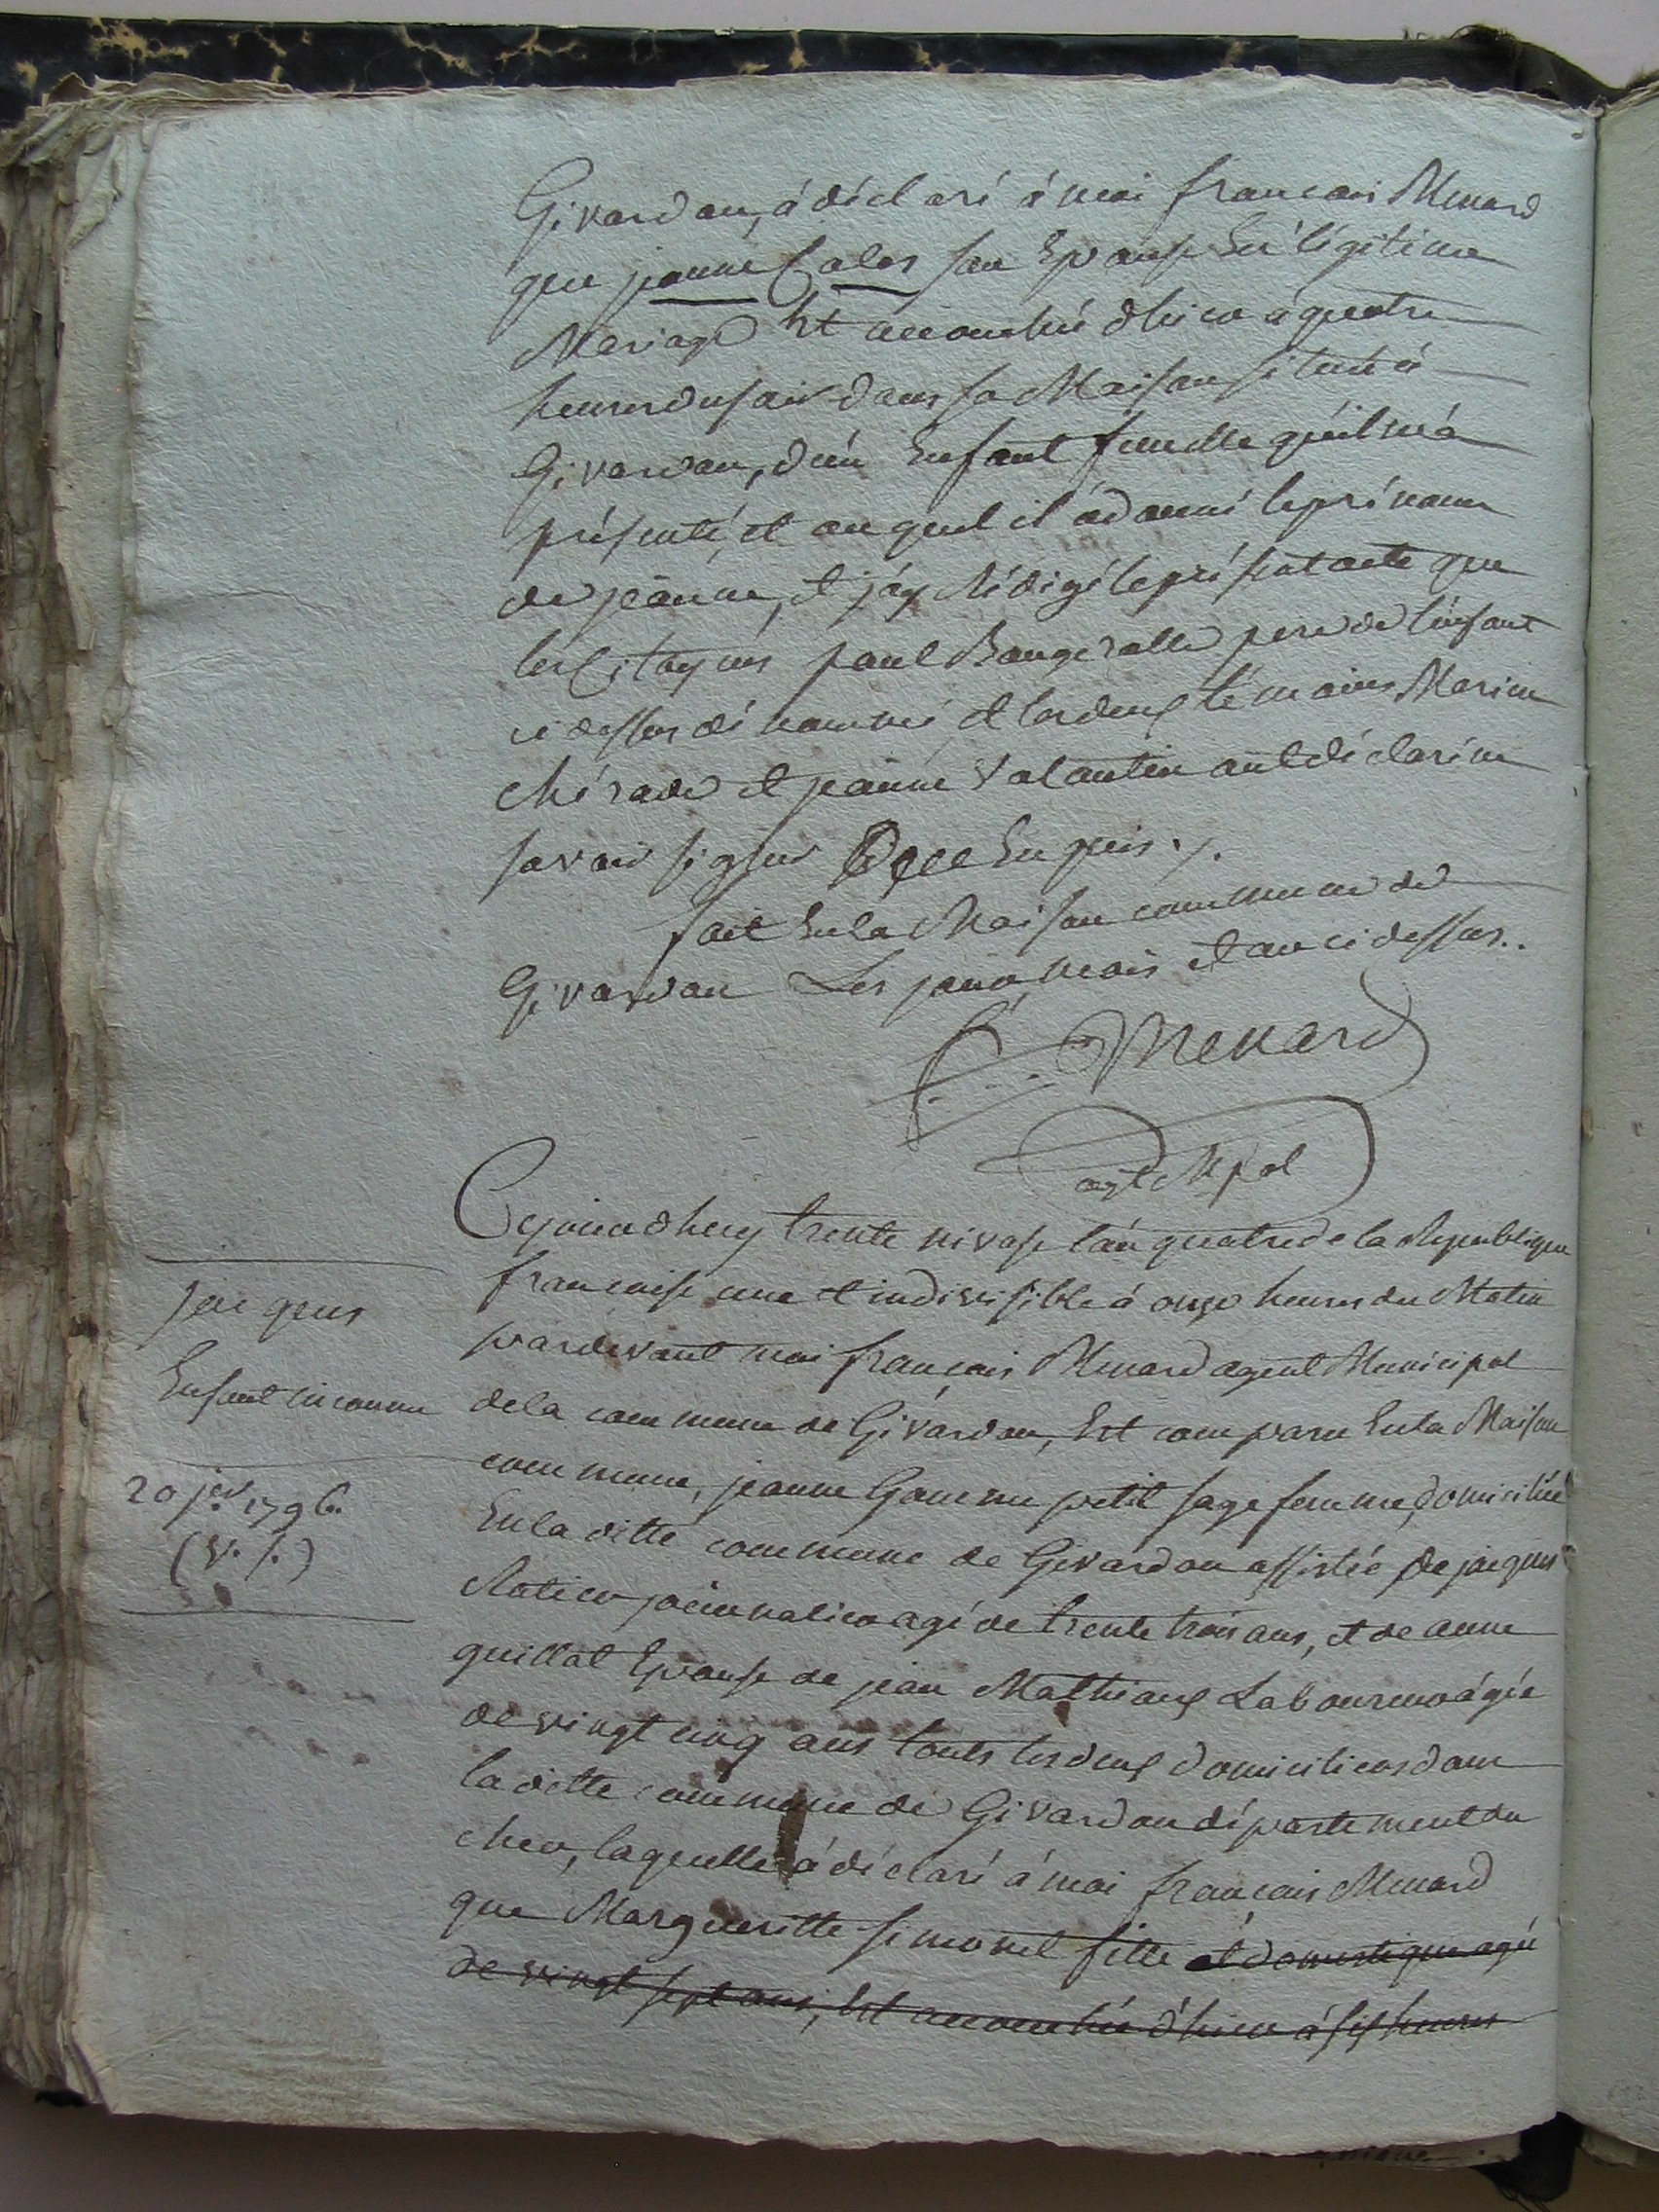 Givardon, á déclaré á moi francois Menard
que jeanne Cales son Epouse En légitime
Mariage Est accouchée dhier a quatre
heures du soir dans sa Maison située á
Givardon, d'un Enfant femelle qu'il m'á
présenté, et au quel il á donné le prénom
de jeanne, et j'ay Rédigé le présent acte que
les Citoyens paul Baugeralle pere de l'enfant
ci dessus dénommé, et les deux témoins Marie
chérade et jeanne Valantin ont déclaré ne
savoir signer de ce Enquis ./.
fait En la Maison commune de
Givardon Les jour, mois et an ci dessus..
f. Menard
agt Mpal
Cejourdhuy trente nivose l'an quatre de la Republique
francoise une et indivisible á onze heures du Matin
pardevant moi françois Menard agent Municipal
de la commune de Givardon, Est comparu En la Maison
commune, jeanne petit sage femme, domiciliée
En la ditte commune de Givardon assistée de jacques
Ratier journalier agé de trente trois ans, et de anne
guillot Epouse de jean Mathiaux Laboureur ágée
de vingt cinq ans touts les deux domiciliers dans
la ditte commune de Givardon département du
cher, laquelle á déclaré á moi françois Menard
que Margueritte simonet fille et domestique agée
de vingt sept ans, Est accouchée d'hier á six heures
jacques
Enfant inconnu
20 jer. 1796.
(v. s.)